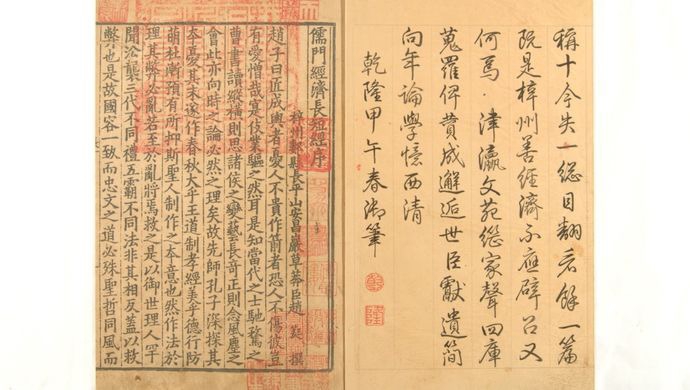 稱十今失一總目翻看餘一篇
既是梓州善經濟不應辟召又
何焉津瀛文苑繼家聲四庫
蒐羅俾贊成邂逅世臣獻遺簡
向年論學憶西清
乾隆甲午春御筆
乾
隆
儒門經濟長短經序
梓州郪縣長平山安昌巖草莽臣趙蕤撰
趙子曰匠成輿者憂人不貴作箭者恐人不傷彼豈
有愛憎哉寔伎業驅之然耳是知當代之士馳騖之
曹書讀縱橫則思諸侯之變藝長奇正則念風塵之
會此亦向時之論必然之理矣故先師孔子深探其
本憂其末遂作春秋大乎王道制孝經美乎德行防
萌杜漸預有所抑斯聖人制作之本意也然作法於
理其弊必亂若至於亂將焉救之是以御世理人罕
聞沿襲三代不同禮五霸不同法非其相反蓋以救
弊也是故國容一致而忠文之道必殊聖哲同風而